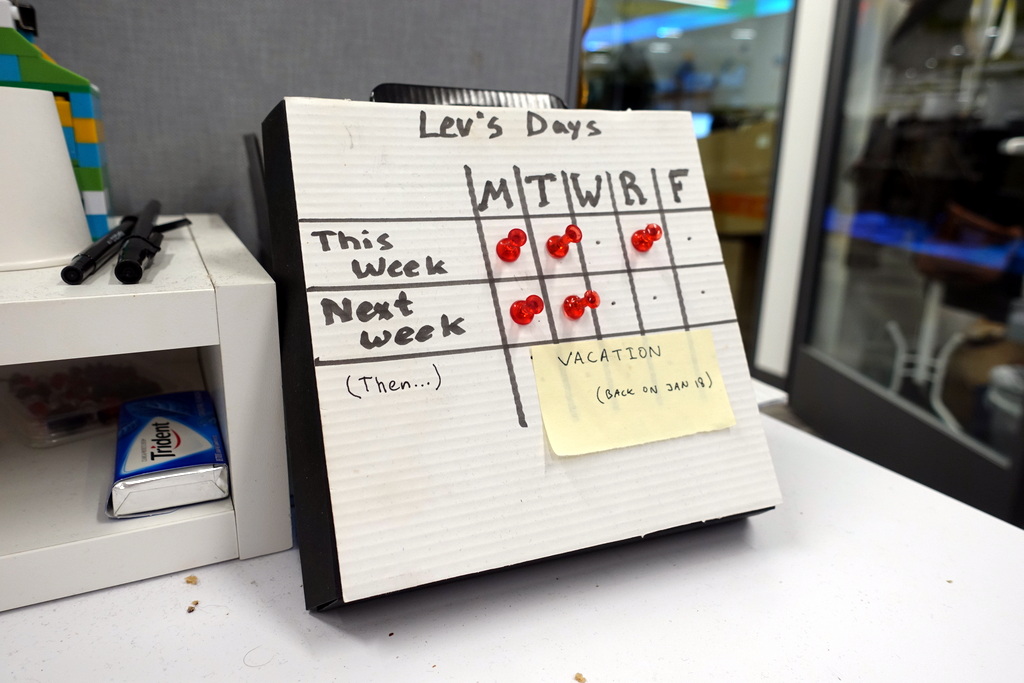 Lev's Days
M T W R F
This
Week
Next
week
(Then...)
VACATION
(BACK ON JAN 18)
Trident